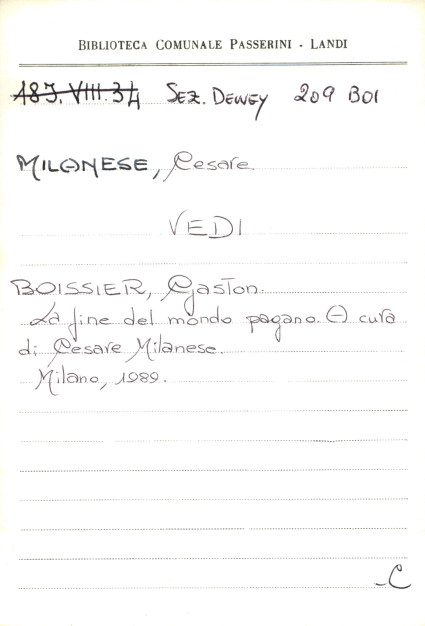 BIBLIOTECA COMUNALE PASSERINI - LANDI
187.VIII.34 SEZ. DEWEY 209 BOI
MILANESE, Cesare.
VEDI
BOISSIER, Gaston.
La fine del mondo pagano. (-) cura
di Cesare Milanese.
Milano, 1989.
-C